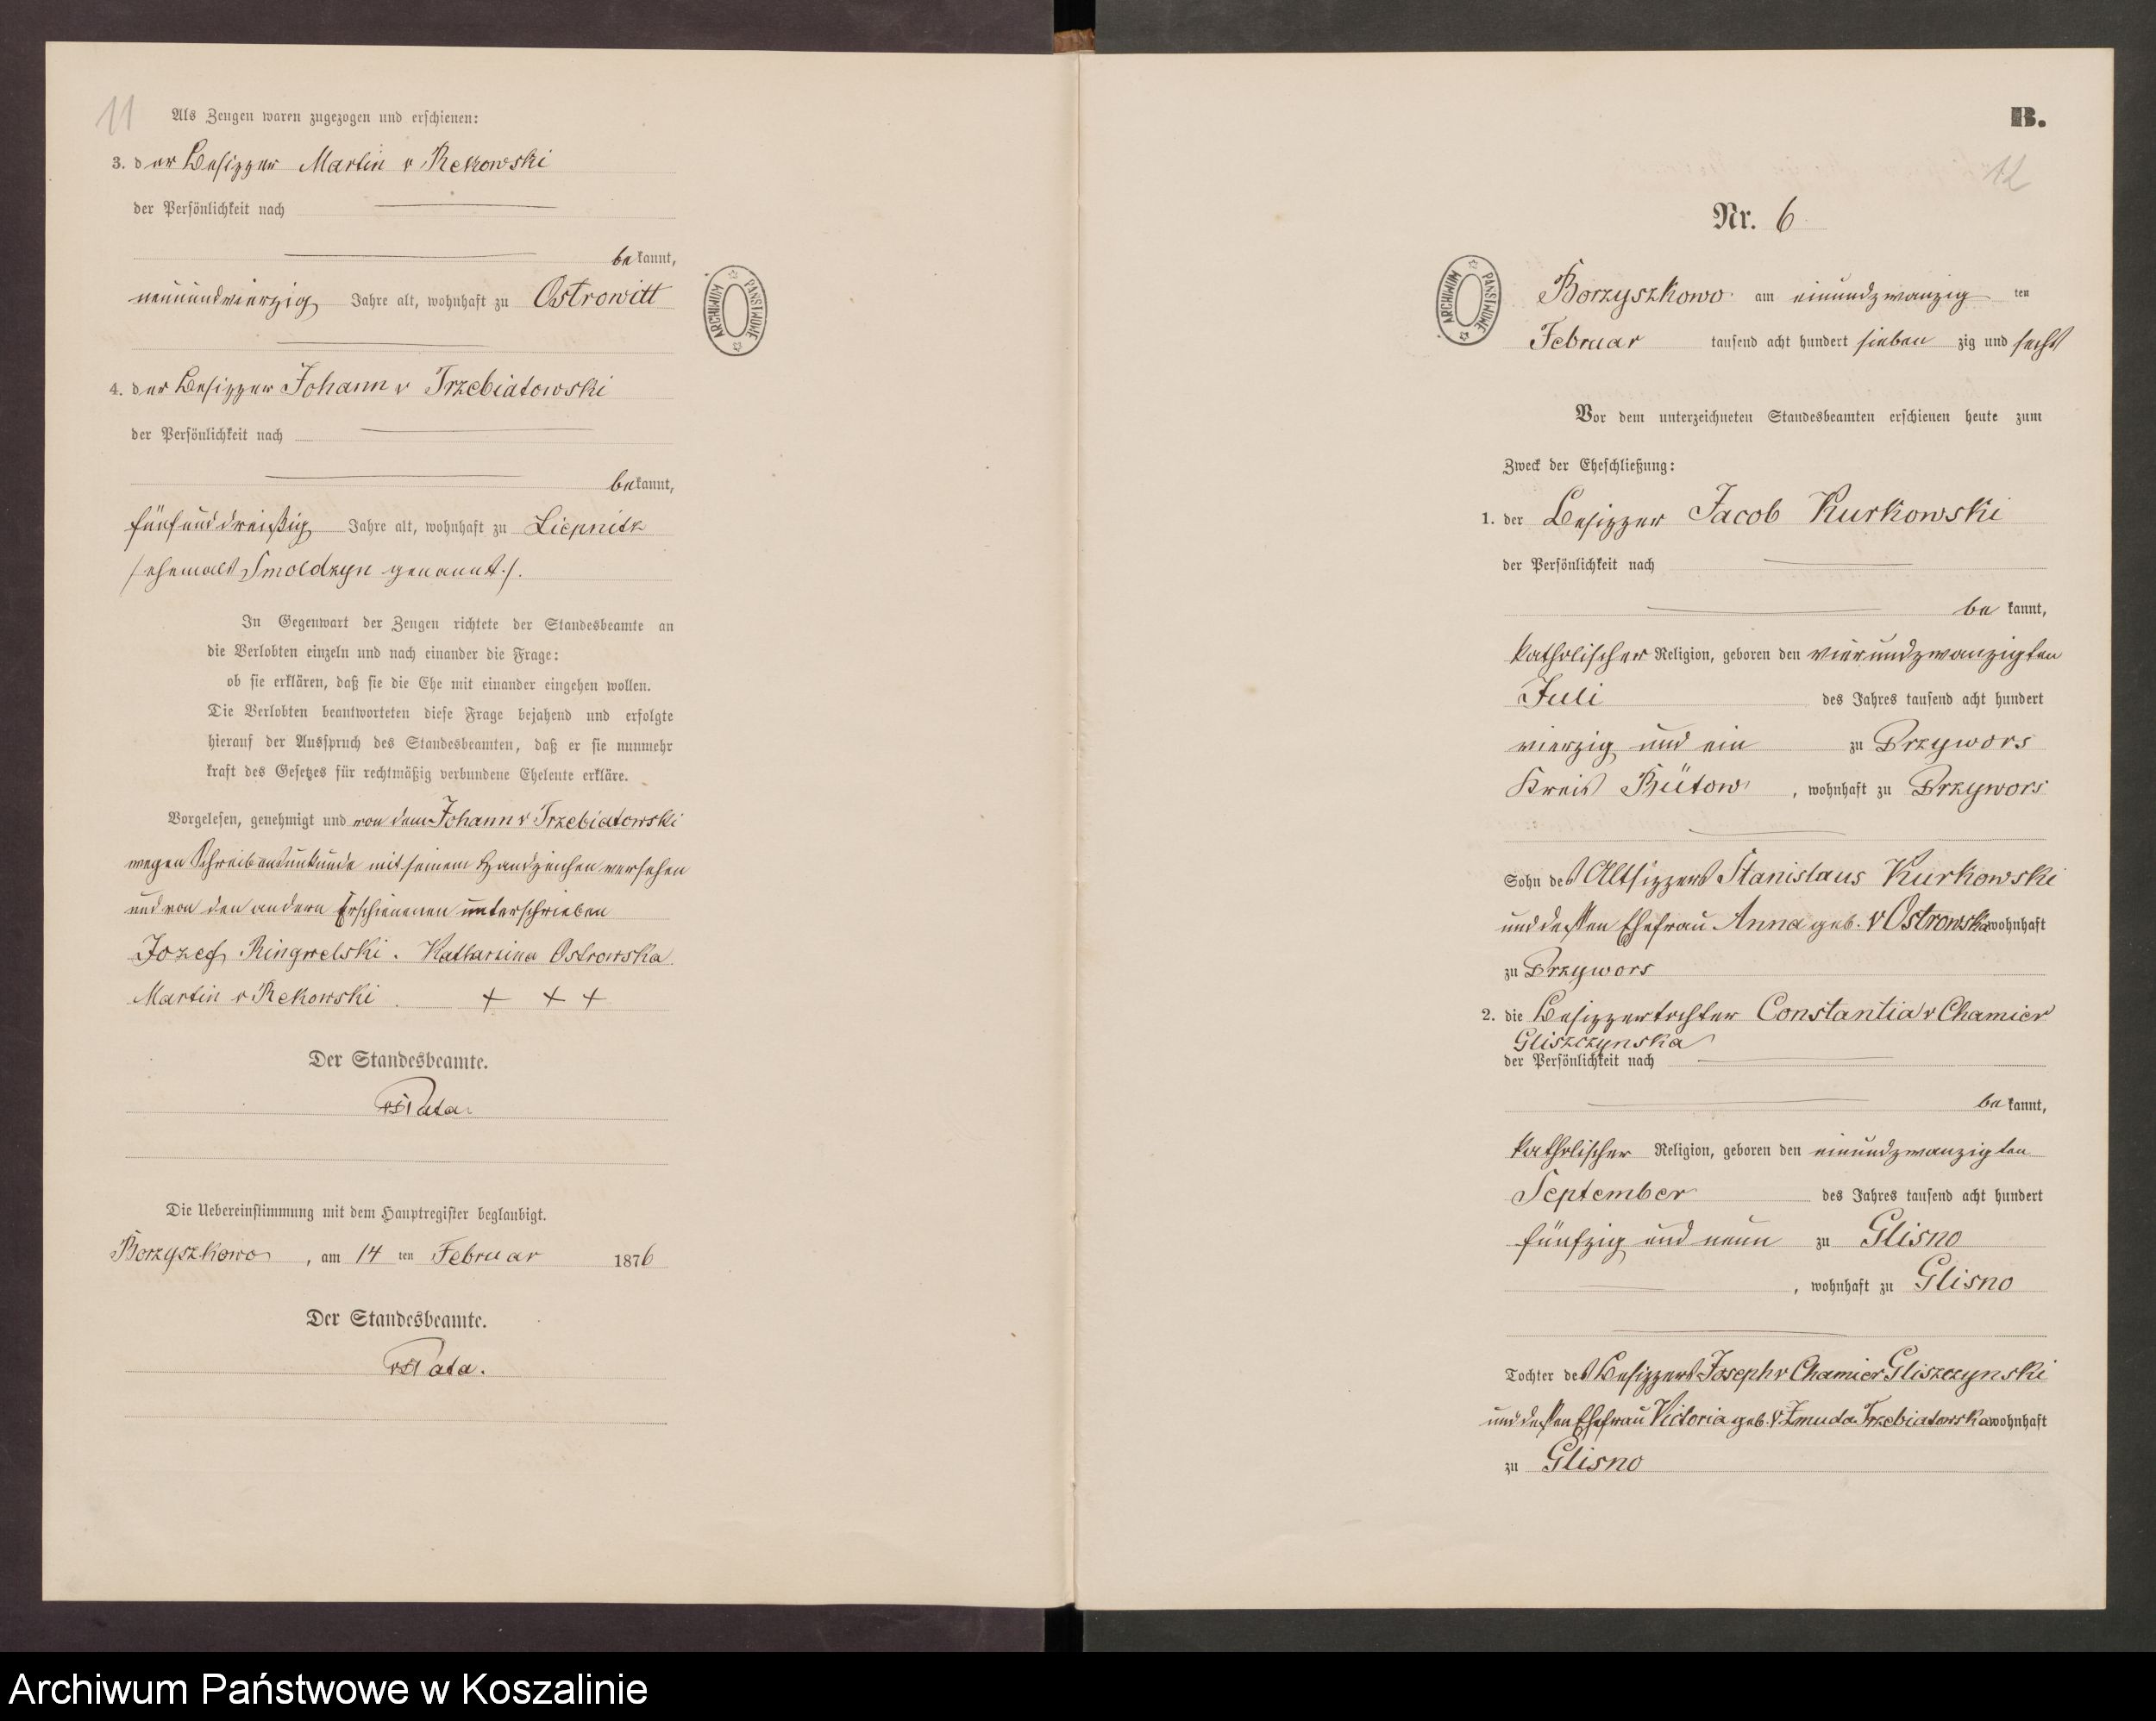 11
Als Zeugen waren zugezogen und erschienen:
3. der Besizzer Martin v Rekowski
der Persönlichkeit nach
bekannt,
neunundvierzig Jahre alt, wohnhaft zu Ostrowitt
4. der Besizzer Johann v Trzebiatowski
der Persönlichkeit nach
bekannt,
fünfunddreißig Jahre alt, wohnhaft zu Liepnitz
/ehemals Smoldzyn genannt./.
In Gegenwart der Zeugen richtete der Standesbeamte an
die Verlobten einzeln und nach einander die Frage:
ob sie erklären, daß sie die Ehe mit einander eingehen wollen.
Die Verlobten beantworteten diese Frage bejahend und erfolgte
hierauf der Ausspruch des Standesbeamten, daß er sie nunmehr
kraft des Gesetzes für rechtmäßig verbundene Eheleute erkläre.
Vorgelesen, genehmigt und von dem Johann v Trzebiatowski
wegen Schreibensunkunde mit seinem Handzeichen versehen
und von den andern Erschienenen unterschrieben
Jozef Ringwelski. Katharina Ostrowska.
Martin v Rekowski. + + +
Der Standesbeamte.
Die Uebereinstimmung mit dem Hauptregister beglaubigt.
Borzyszkowo, am 14 ten Februar 1876
Der Standesbeamte.
ARCHIWUM PAŃSTWOWE
B.
12
Nr. 6
ARCHIWUM PAŃSTWOWE
Borzyszkowo am einundzwanzig ten
Februar tausend acht hundert siebenzig und sechs
Vor dem unterzeichneten Standesbeamten erschienen heute zum
Zweck der Eheschließung:
1. der Besizzer Jacob Kurkowski
der Persönlichkeit nach
bekannt,
katholischer Religion, geboren den vierundzwanzigten
Juli des Jahres tausend acht hundert
vierzig und ein zu Przywors
Kreis Bütow, wohnhaft zu Przywors
Sohn des Altsizzers Stanislaus Kurkowski
und dessen Ehefrau Anna geb. v Ostrowska wohnhaft
zu Przywors
2. die Besizzertochter Constantia v Chamier
Gliszczynska
der Persönlichkeit nach
bekannt,
katholischer Religion, geboren den einundzwanzigten
September des Jahres tausend acht hundert
fünfzig und neun zu Glisno
, wohnhaft zu Glisno
Tochter des Besizzers Joseph v Chamier Gliszczynski
und dessen Ehefrau Victoria geb. v Zmuda Trzebiatowska wohnhaft
zu Glisno
Archiwum Państwowe w Koszalinie